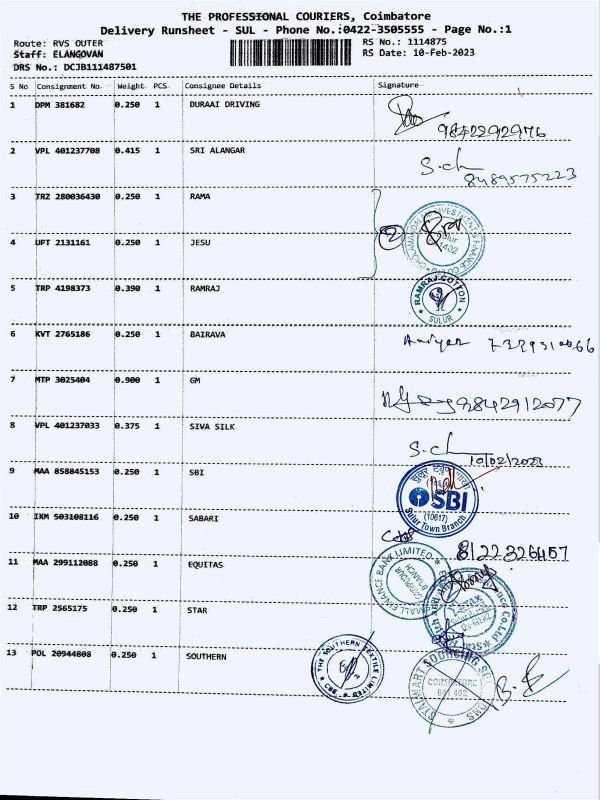 THE PROFESSIONAL COURIERS, Coimbatore
Delivery Runsheet - SUL - Phone No.:0422-3505555 - Page No.:1
Route: RVS OUTER
Staff: ELANGOVAN
DRS No.: DCJB111487501
RS No.: 1114875
RS Date: 10-Feb-2023
S No Consignment No Weight PCS Consignee Details Signature
1 DPM 381682 0.250 1 DURAAI DRIVING
9842292976
2 VPL 401237708 0.415 1 SRI ALANGAR
S.ch
8489575223
3 TRZ 280036430 0.250 1 RAMA
4 UPT 2131161 0.250 1 JESU
2
5 TRP 4198373 0.390 1 RAMRAJ
RAMRAJ COTTON
SULUR
6 KVT 2765186 0.250 1 BAIRAVA
7 MTP 3025404 0.900 1 GM
9842912077
8 VPL 401237033 0.375 1 SIVA SILK
S.ch
10/02/2023
9 MAA 858845153 0.250 1 SBI
SBI
(10617)
Sulur Town Branch
10 IXM 503108116 0.250 1 SABARI
8122326457
11 MAA 299112088 0.250 1 EQUITAS
12 TRP 2565175 0.250 1 STAR
13 POL 20944808 0.250 1 SOUTHERN
THE SOUTHERN TEXTILE LIMITED
CBE
COIMBATORE
641 402